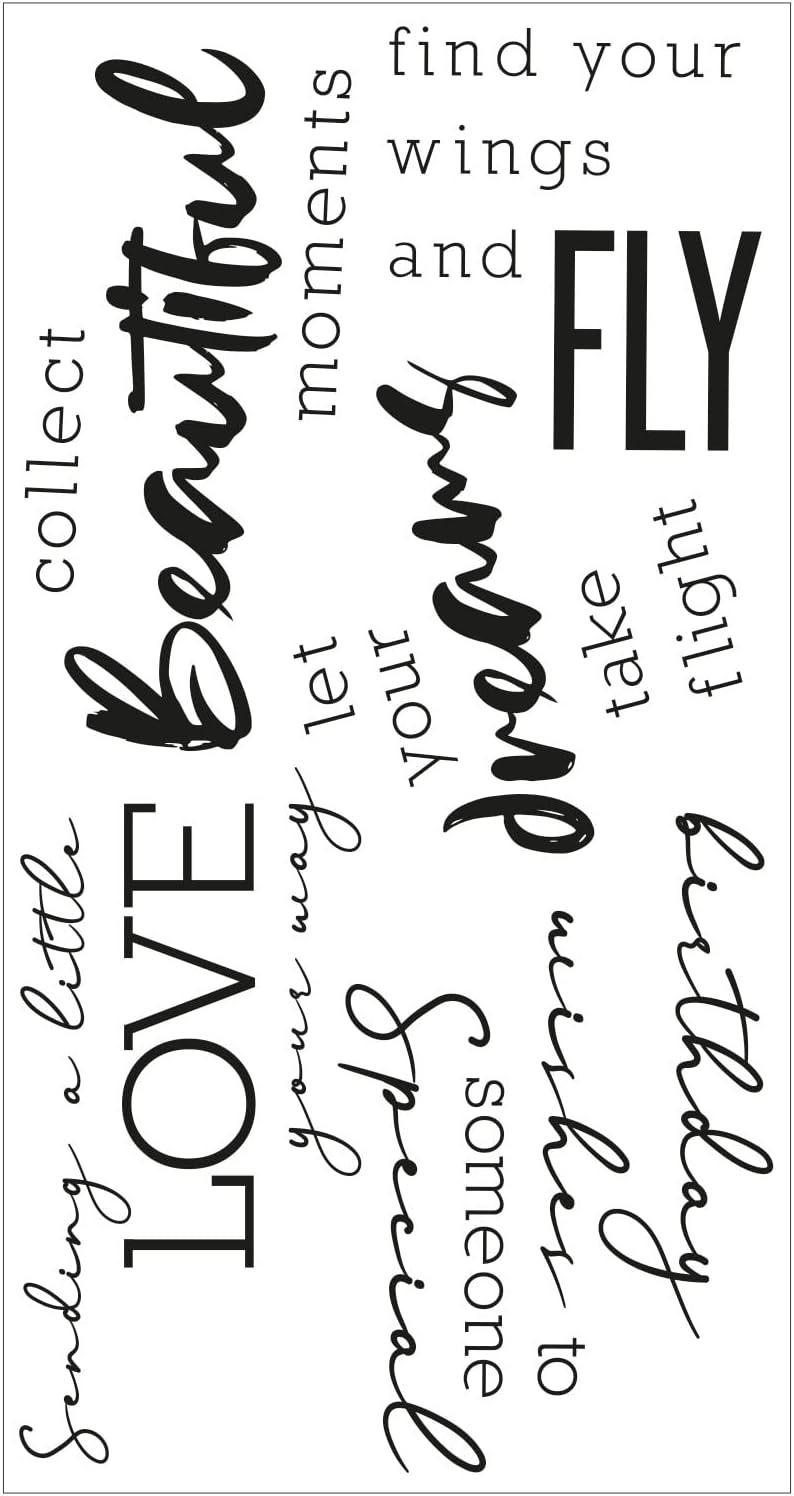 find your
wings
and FLY
collect
Beautiful
moments
let
your
dreams
take
flight
Sending a little
LOVE
your way
birthday
wishes to
someone
Special